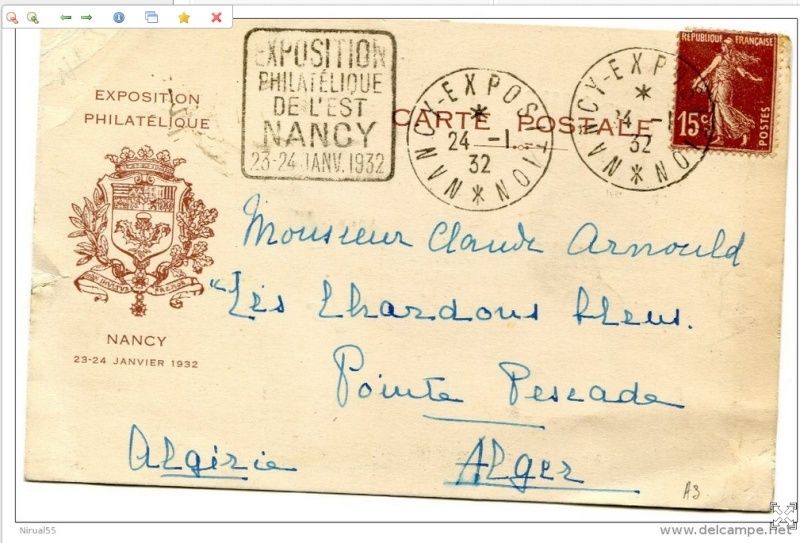 EXPOSITION
PHILATÉLIQUE
DE L'EST
NANCY
23-24 JANV. 1932
NANCY-EXPOSITION
24 -1
32
NANCY-EXPOSITION
24 -1
32
RÉPUBLIQUE FRANÇAISE
15c
POSTES
CARTE POSTALE
EXPOSITION
PHILATÉLIQUE
NON INULTUS PREMOR
NANCY
23-24 JANVIER 1932
Monsieur Claude Arnould
"Les Chardons bleus.
Pointe Pescade
Algérie Alger
A3
Nirual55
www.delcampe.net